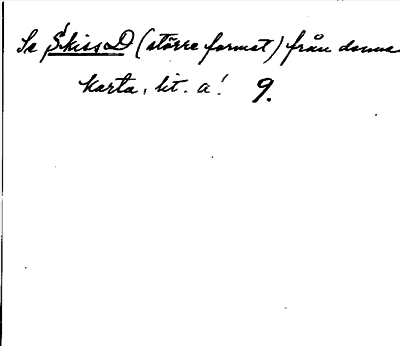 Se Skiss D (större format) från denna
karta, lit. a! 9.